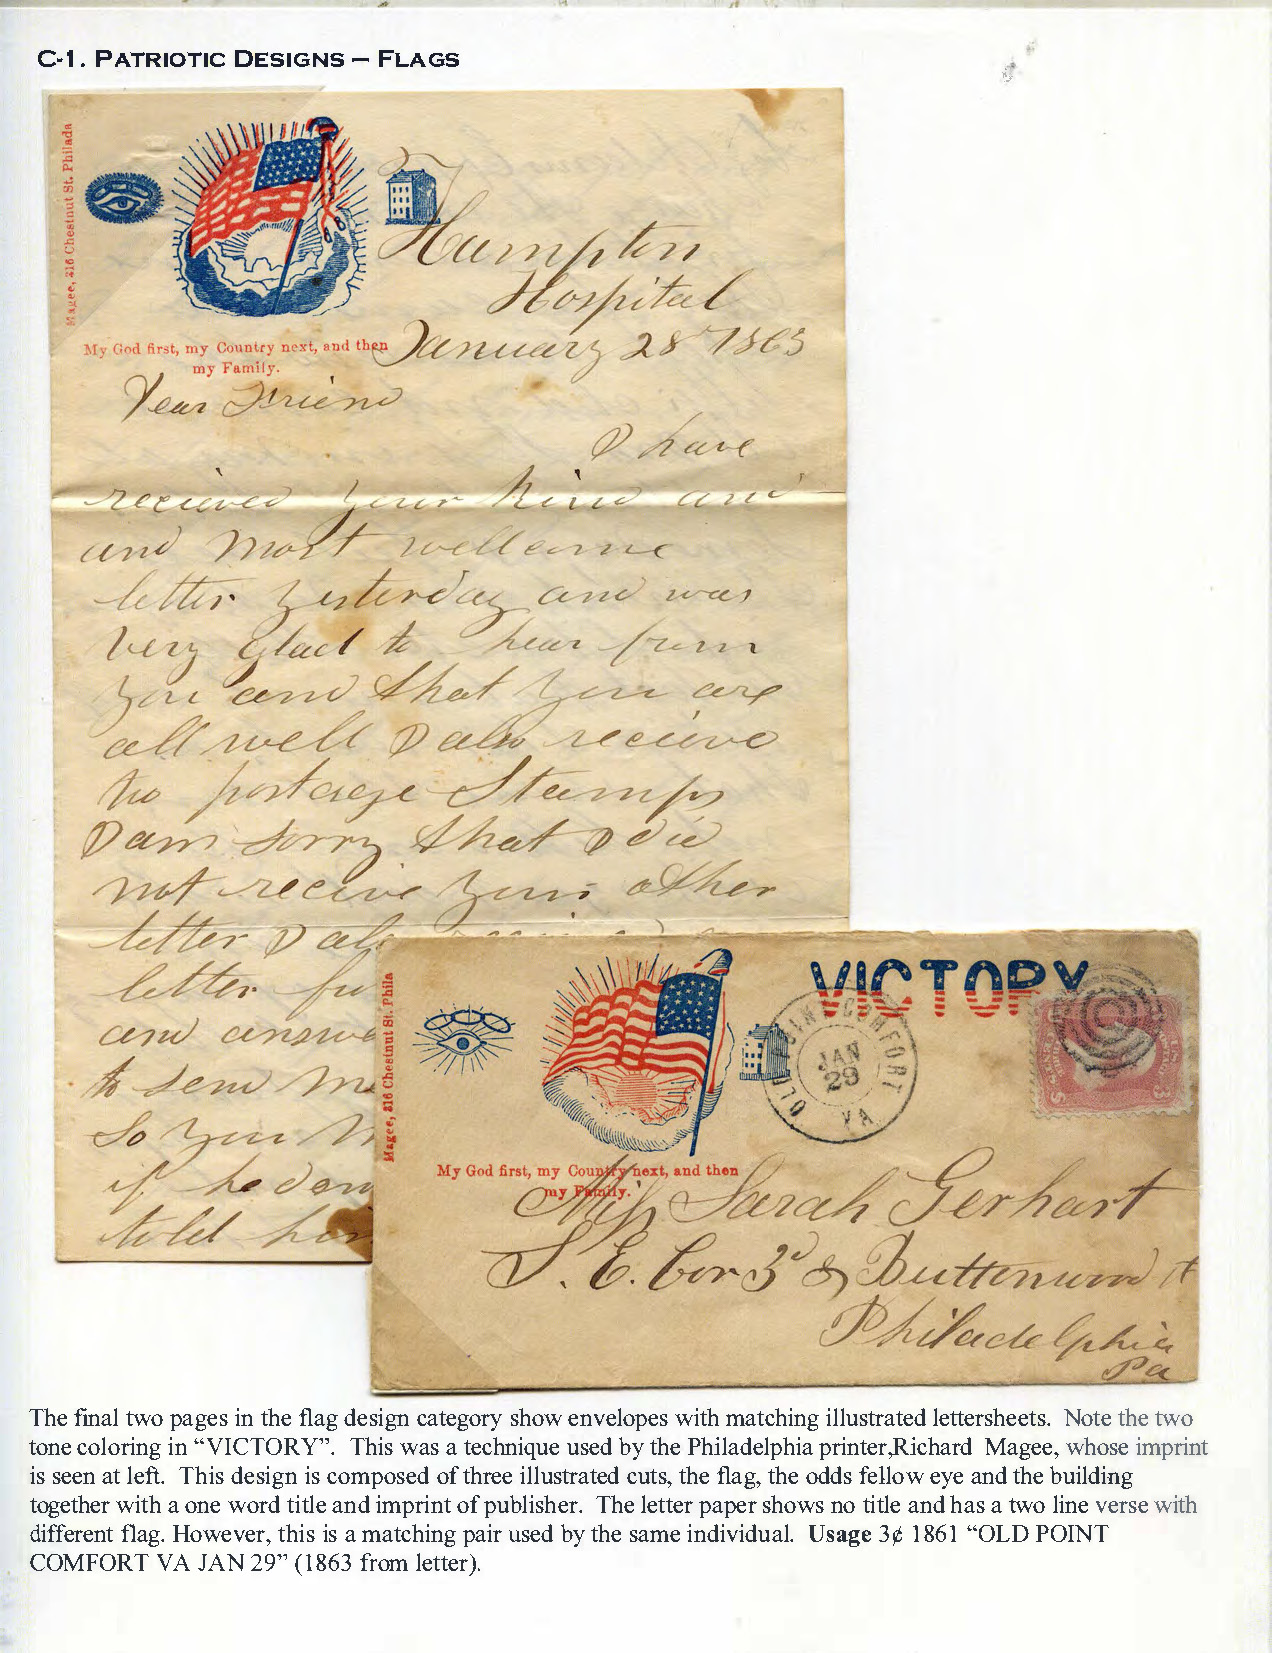 C-1. PATRIOTIC DESIGNS – FLAGS
Magee, 316 Chestnut St. Philada
My God first, my Country next, and then
my Family.
Hampton
Hospital
January 28th 1863
Dear Friend
I have
recieved your kind and
and most wellcome
letter yesterday and was
very glad to hear from
you and that you are
all well I also recieve
two postage Stamps
I am sorry that I did
not recive your other
letter I also
letter
and answe
to send me
so you
if he don
told him
Magee, 316 Chestnut St. Phila
VICTORY
OLD POINT COMFORT
JAN
29
VA
My God first, my Country next, and then
my Family.
Miss Sarah Gerhart
S. E. Cor 3d & Buttonwood st
Philadelphia
Pa
The final two pages in the flag design category show envelopes with matching illustrated lettersheets. Note the two
tone coloring in “VICTORY”. This was a technique used by the Philadelphia printer,Richard Magee, whose imprint
is seen at left. This design is composed of three illustrated cuts, the flag, the odds fellow eye and the building
together with a one word title and imprint of publisher. The letter paper shows no title and has a two line verse with
different flag. However, this is a matching pair used by the same individual. Usage 3¢ 1861 “OLD POINT
COMFORT VA JAN 29” (1863 from letter).